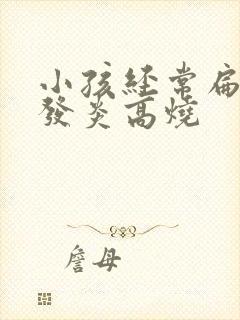 小孩經常扁
發炎高燒
詹母